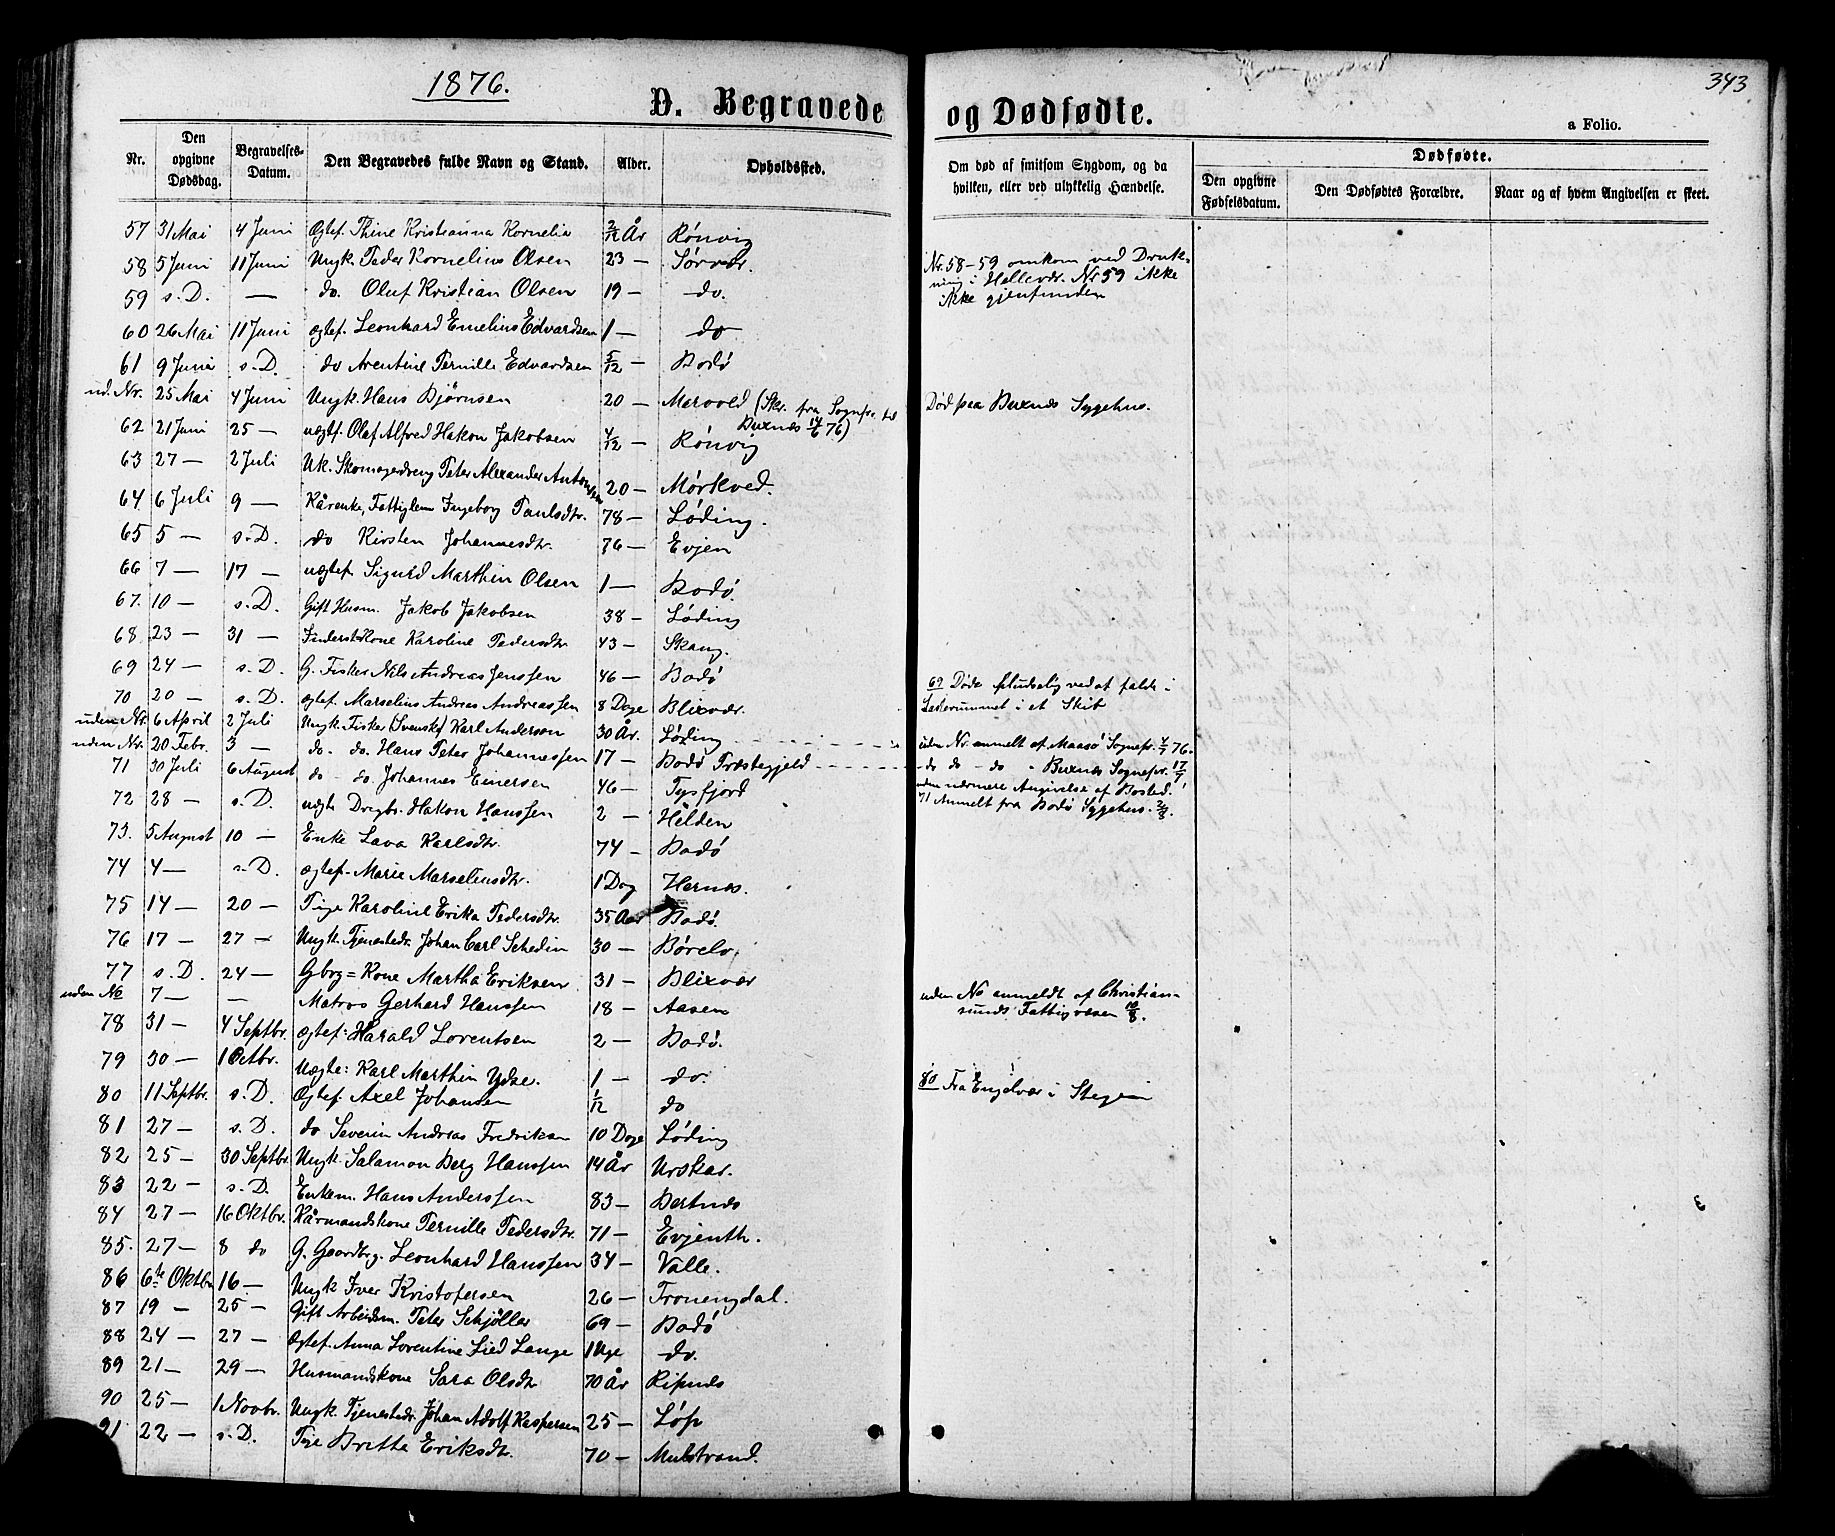 1876.
D. Begravede
og Dødfødte.
343
a Folio.
Nr.
Den opgivne Dødsdag.
Begravelses-Datum.
Den Begravedes fulde Navn og Stand.
Alder.
Opholdssted.
Om død af smitsom Sygdom, og da hvilken, eller ved ulykkelig Hændelse.
Dødfødte.
Den opgivne Fødselsdatum.
Den Dødfødtes Forældre.
Naar og af hvem Angivelsen er skeet.
57 31 Mai 4 Juni Ægtef. Thine Kristianna Kornelia 2/12 År Rönvig
58 5 Juni 11 Juni Ungk. Peder Kornelius Olsen 23 — Sörvær.
59 s. D. — do. Oluf Kristian Olsen 19 — do.
60 26 Mai 11 Juni ægtef. Leonhard Emelius Edvardsen 1 — do
61 9 Junia s. D. do Arentine Pernille Edvardsen 5/12 — Bodö
ud. Nr. 25 Mai 4 Juni Ungk. Hans Bjørnsen 20 — Marvold (Skr. fra Sognepr. til Buxnæs 14/6 76)
62 21 Juni 25 — uægtef. Olaf Alfred Hakon Jakobsen 4/12 — Rönvig
63 27 — 2 Juli Uk. Skomagerdreng Peter Alexander Antonsen 20 — Mörkved.
64 6 Juli 9 — Kårenke, Fattiglem Ingeborg Paulsdtr. 78 — Löding.
65 5 — s. D. do Kirsten Johannesdtr. 76 — Evjen
66 7 — 17 — uægtef. Sigurd Marthin Olsen 1 — Bodö.
67. 10 — s. D. Gift Husm. Jakob Jakobsen 38 — Löding
68 23 — 31 — Inderstkone Karoline Pedersdtr 43 — Skaug.
69 24 — s. D. G. Fisker Nils Andreas Jenssen 46 — Bodö
70 20 — s. D. ægtef. Marselius Andreas Andreassen 8 Dage Blixvær.
uden Nr. 6 April 2 Juli Ungk. Fisker (Svensk) Karl Anderson 30 År. Löding
uden Nr. 20 Febr. 3 — do. do. Hans Peter Johannessen 17 — Bodö Præstegjeld
71 30 Juli 6 August do — do. Johannes Einersen 46 — Tysfjord
72 28 — s. D. uægte Drgb. Hakon Hanssen 2 — Hilden
73. 5 August 10 — Enke Lava Karlsdtr. 74 — Bodö
74 4 — s. D. ægtef. Marie Marselinsdtr. 1 Dag Hernæs.
75 14 — 20 — Pige Karoline Erika Pedersdtr. 35 Aar Bodö.
76 17 — 27 — Ungk. Tjenestedr. Johan Carl Schedin 30 — Börelv.
77 s. D. 24 — Gbrg = Kone Martha Eriksen 31 — Blixvær
uden No 7 — — Matros Gerhard Hanssen 18 — Aasen
78 31 — 4 Septbr. Ægtef: Harald Lorentsen 2 — Bodö.
79 30 — 1 Octbr. Uægte: Karl Marthin Ydse. 1 — do.
80 11 Septbr. s. D. Ægtef. Axel Johansen 1/12 do
81 27 — s. D. do Severin Andreas Fredriksen 10 Dage Löding
82 25 — 30 Septbr. Ungk. Salamon Berg Hanssen 14 År Urskar.
83 22 — s. D. Enkem. Hans Anderssen 83 — Bertnæs
84 27 — 16 Oktbr. Kårmandskone Pernille Pedersdtr. 71 — Evjenth.
85. 27 — 8 do G. Gaardbrg. Leonhard Hanssen 34 — Valle.
86 6te Oktbr 16 — Ungk Iver Kristofersen 26 — Tronengdal.
87 19 — 25 — Gift Arbeidsm. Peter Schjöller 69 — Bodö
88 24 — 27 — Ægtef. Anna Lorentine Lied Lange 1 Uge do.
89 21 — 29 — Husmandskone Sara Olsdtr 70 År Ripnæs
90 25 — 1 Novbr. Ungk. Tjenestedr. Johan Adolf Kaspersen 25 — Löp
91 22 — s. D. Pige Britta Eriksdtr. 70 — Mulstrand.
Nr. 58-59 omkom ved Drukning i Hellevær. Nr 59 ikke ikke gjenfunden
Död paa Buxnæs Sygehus.
69 Döde pludselig ved at falde i Lasterummet i et Skib
uden Nr. anmelt af Maasö Sognepr. 4/7 76.
- do do - do - Buxnæs Sognepr. 17/7, uden nærmere Angivelse af Bosted.
71 Anmelt fra Bodö Sygehus. 2/8.
uden No anmeldt af Christiansunds Fattigvæsen 10/8.
80 Fra Engelvær i Stegen